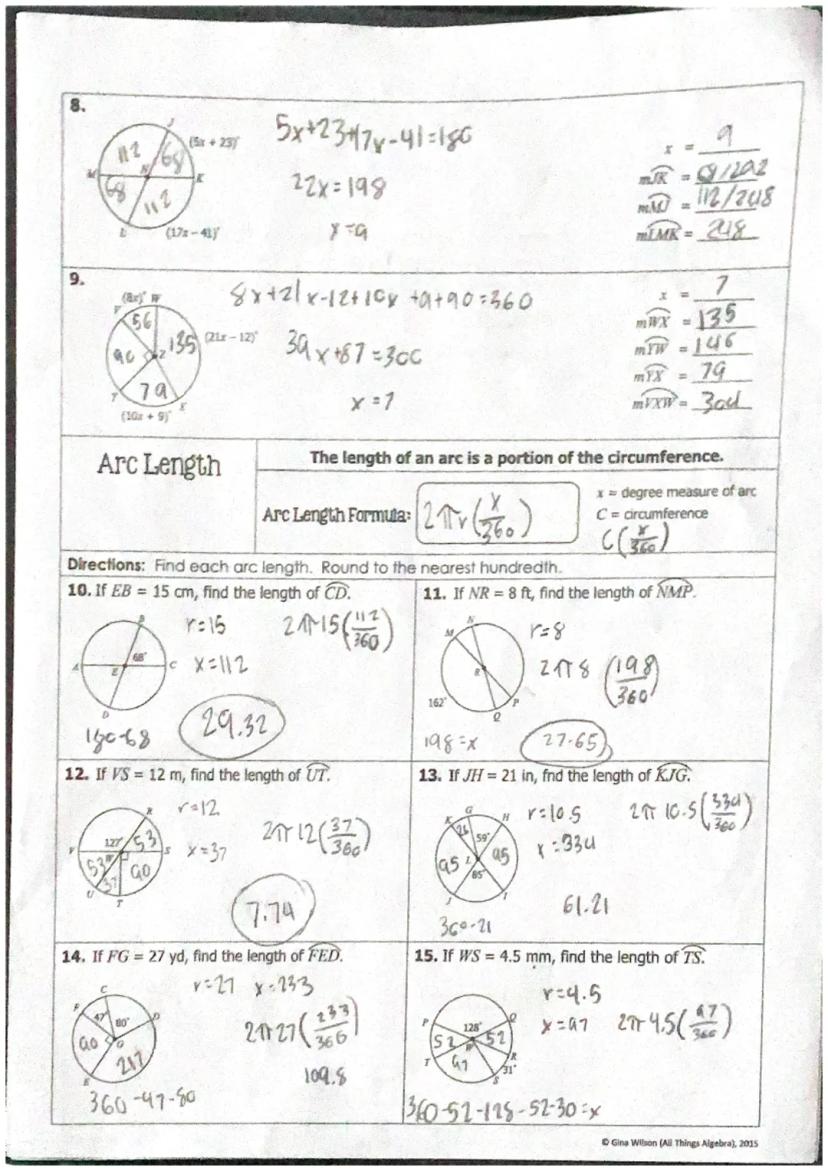 8.
J
112
68
(5x + 23)°
M
N
K
68
112
L
(17x - 41)°
5x+23+17x-41=180
22x=198
x=9
x = 9
mJK = 68/292
mMJ = 112/248
mLMK = 248
9.
(8x)° W
V
56
135
(21x - 12)°
90
Z
79
Y
X
(10x + 9)°
8x+21x-12+10x+9+90=360
39x+87=360
x=7
x = 7
mWX = 135
mYW = 146
mYX = 79
mVXW = 304
Arc Length
The length of an arc is a portion of the circumference.
Arc Length Formula: 2πr(x/360)
x = degree measure of arc
C = circumference
C(x/360)
Directions: Find each arc length. Round to the nearest hundredth.
10. If EB = 15 cm, find the length of CD.
B
68°
A
E
C
D
r=15
2π15(112/360)
x=112
180-68
29.32
11. If NR = 8 ft, find the length of NMP.
N
M
R
162°
P
Q
r=8
2π8 (198/360)
198=x
27.65
12. If VS = 12 m, find the length of UT.
R
127°
53
V
W
S
53
37
90
U
T
r=12
2π12(37/360)
x=37
7.74
13. If JH = 21 in, fnd the length of KJG.
G
K
H
26
59°
95
L
95
85°
J
I
r=10.5
2π 10.5(334/360)
x=334
61.21
360-21
14. If FG = 27 yd, find the length of FED.
C
F
47°
80°
D
90
G
217
E
r=27 x=233
2π27(233/360)
109.8
360-47-80
15. If WS = 4.5 mm, find the length of TS.
P
128°
Q
52
W
52
T
97
R
31°
S
r=4.5
x=97
2π4.5(97/360)
360-52-128-52-30=x
© Gina Wilson (All Things Algebra), 2015